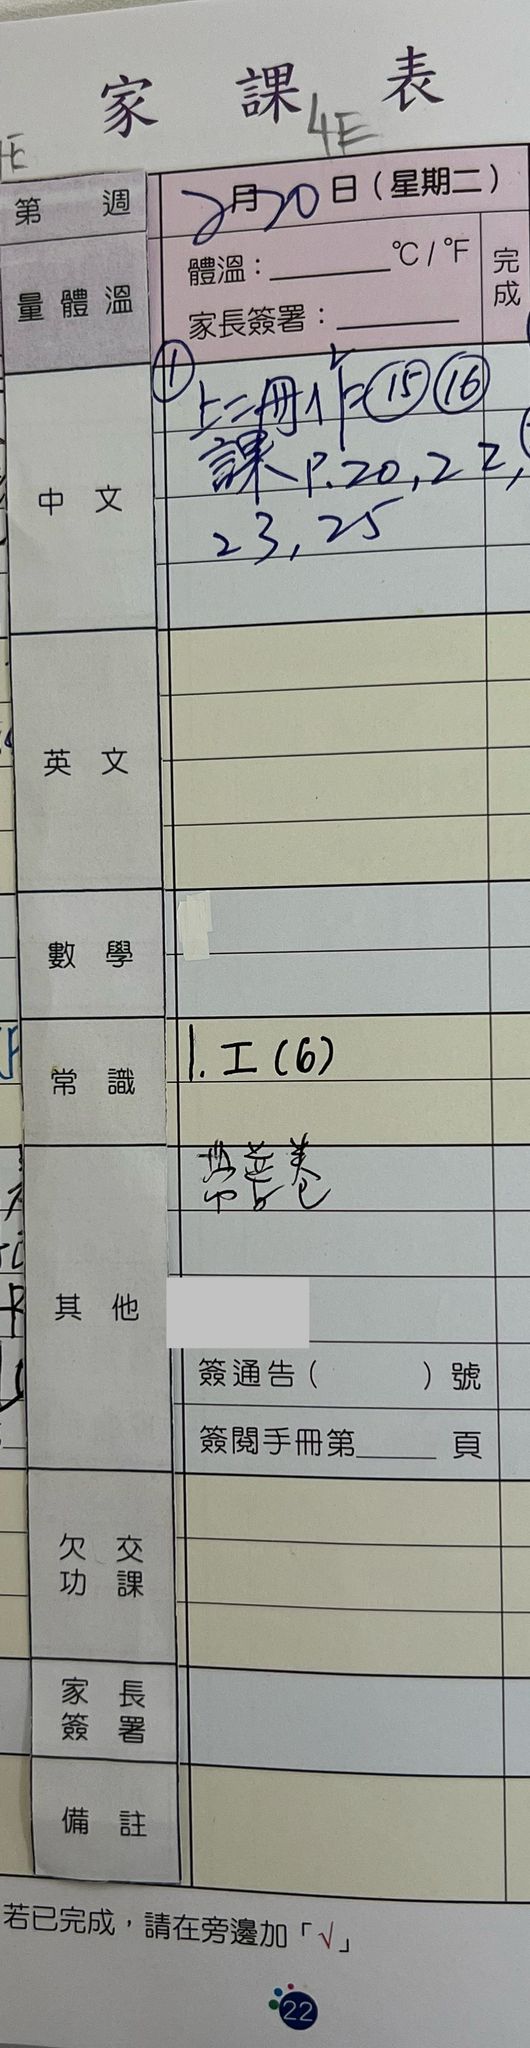 家課表
4E
第 週
2月20日（星期二）
量體溫
體溫：______°C / °F
家長簽署：______
完成
中文
① 上二冊作：⑮ ⑯
課 P.20, 22,
23, 25
英文
數學
常識
1. 工(6)
其他
常普卷
簽通告（ ）號
簽閱手冊第____頁
欠交功課
家長簽署
備註
若已完成，請在旁邊加「√」
22